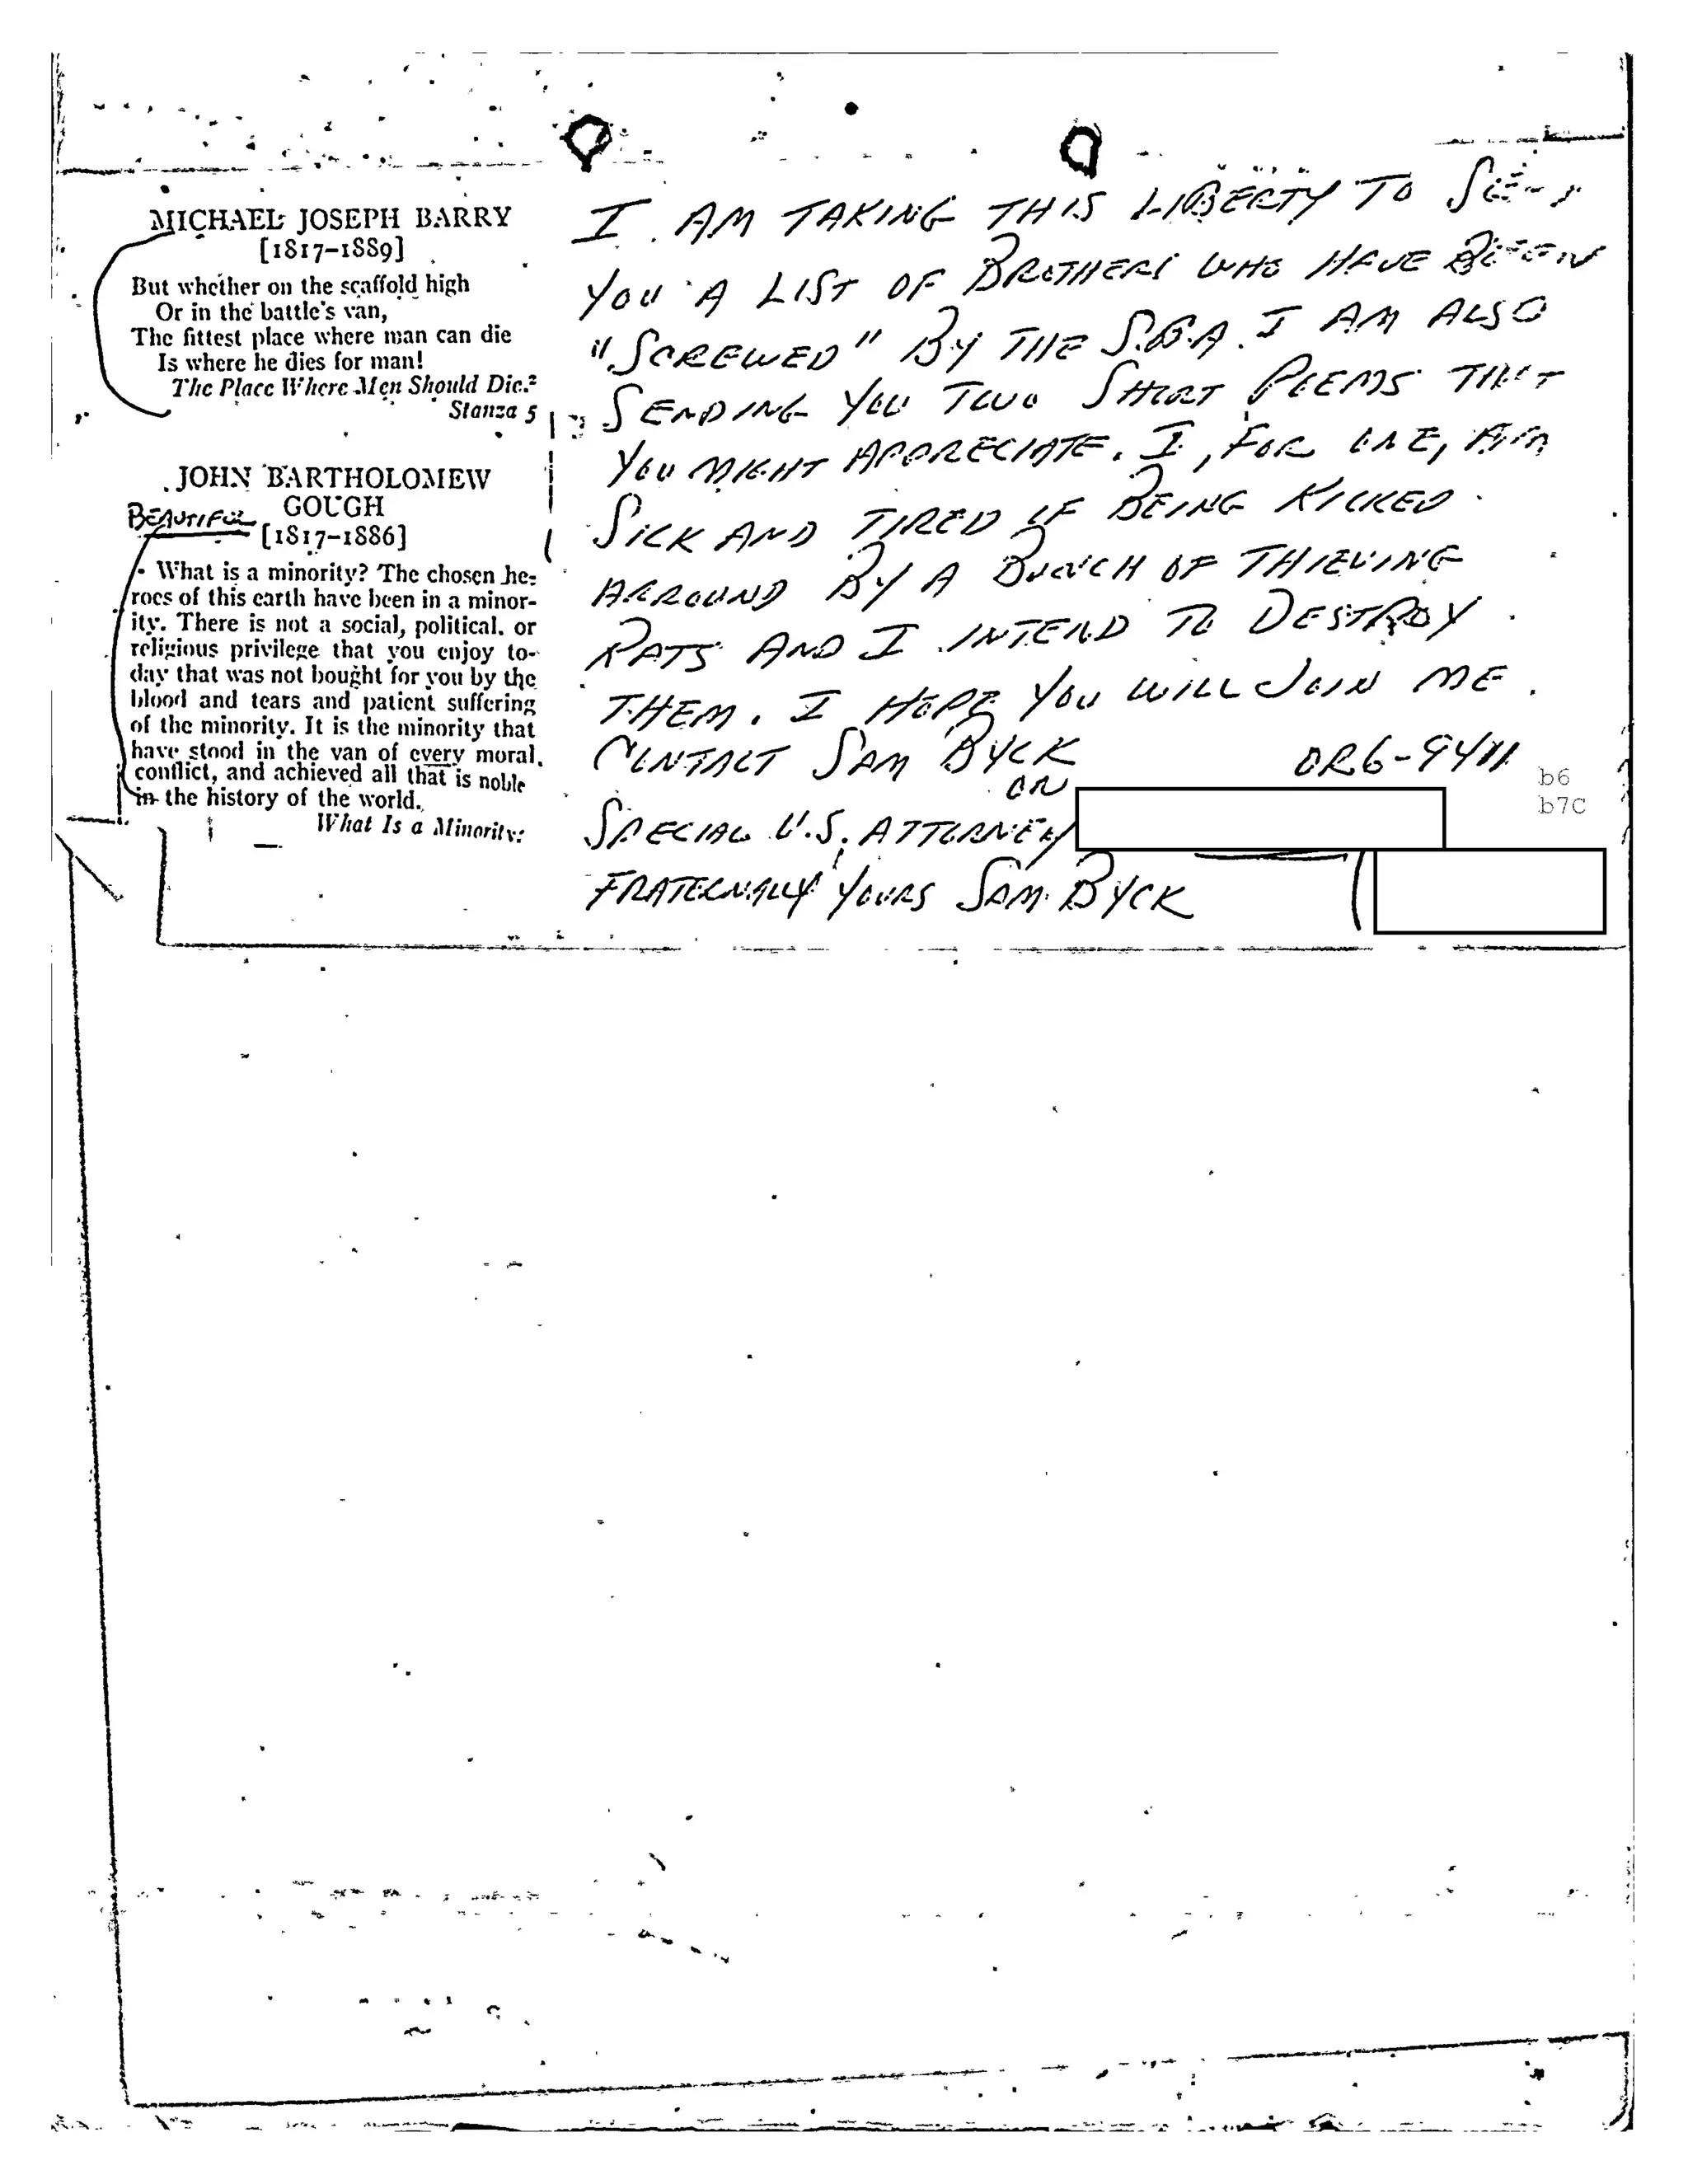 MICHAEL JOSEPH BARRY
[1817–1889]
But whether on the scaffold high
Or in the battle's van,
The fittest place where man can die
Is where he dies for man!
The Place Where Men Should Die.²
Stanza 5
JOHN BARTHOLOMEW
GOUGH
BEAUTIFUL
[1817–1886]
What is a minority? The chosen he-
roes of this earth have been in a minor-
ity. There is not a social, political, or
religious privilege that you enjoy to-
day that was not bought for you by the
blood and tears and patient suffering
of the minority. It is the minority that
have stood in the van of every moral
conflict, and achieved all that is noble
in the history of the world.
What Is a Minority?
I AM TAKING THIS LIBERTY TO
YOU A LIST OF BROTHERS WHO HAVE BEEN
"SCREWED" BY THE S.B.A. I AM ALSO
SENDING YOU TWO SHORT POEMS THAT
YOU MIGHT APPRECIATE. I, FOR ONE, AM
SICK AND TIRED OF BEING KICKED
ARROUND BY A BUNCH OF THIEVING
RATS AND I INTEND TO DESTROY
THEM. I HOPE YOU WILL JOIN ME.
CONTACT SAM BYCK OR6-9411
OR
SPECIAL U.S. ATTORNEY
b6
b7C
FRATERNALLY YOURS SAM BYCK